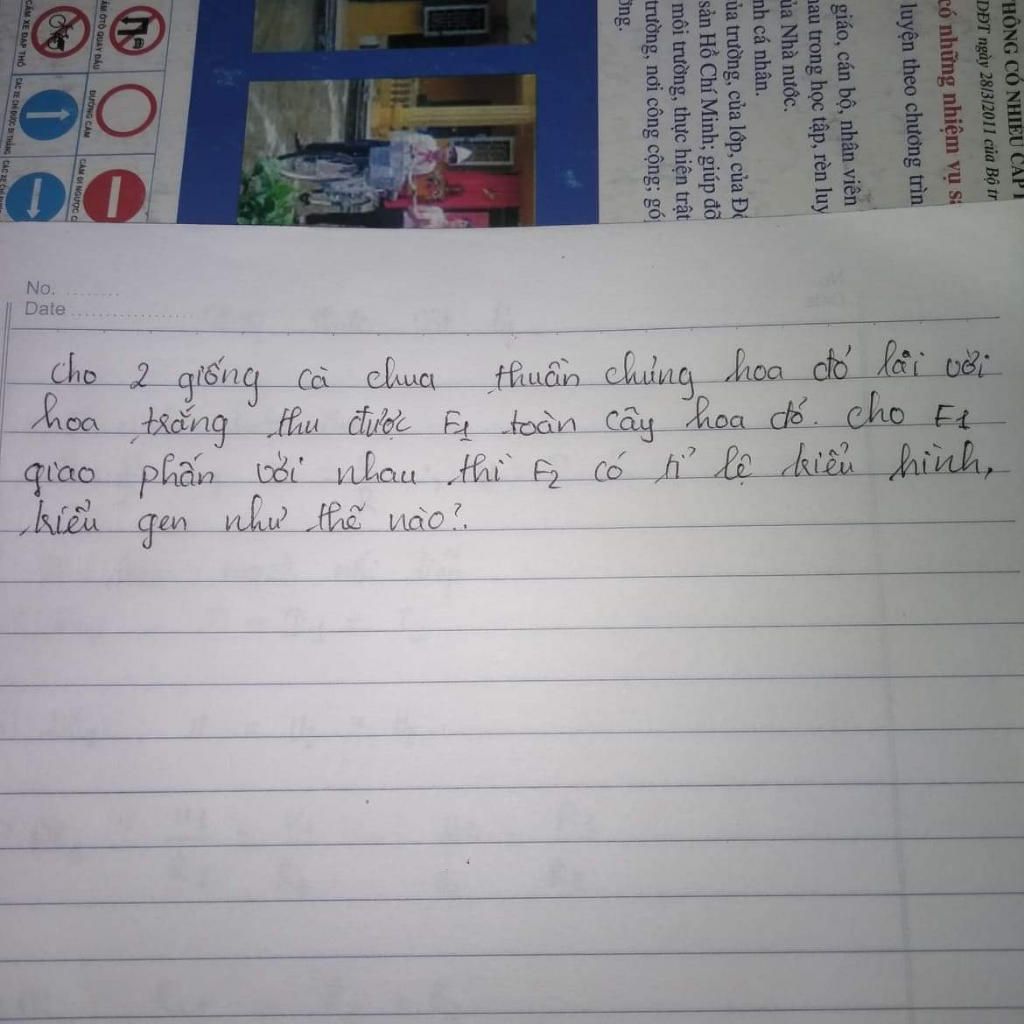 THÔNG CÓ NHIỀU CẤP
DĐT ngày 28/3/2011 của Bộ tr
có những nhiệm vụ s
luyện theo chương trìn
giáo, cán bộ, nhân viên
nhau trong học tập, rèn luy
của Nhà nước.
nh cá nhân.
ủa trường, của lớp, của Đ
sản Hồ Chí Minh; giúp đỡ
môi trường, thực hiện trật
trường, nơi công cộng; gó
ĐƯỜNG CẤM
CẤM XE ĐẠP THỒ
CÁC XE CHỈ ĐƯỢC ĐI THẲNG
CẤM ĐI NGƯỢC C
No. ........
Date ..................
Cho 2 giống cà chua thuần chủng hoa đỏ lai với
hoa trắng thu được F1 toàn cây hoa đỏ. Cho F1
giao phấn với nhau thì F2 có tỉ lệ kiểu hình,
kiểu gen như thế nào?.